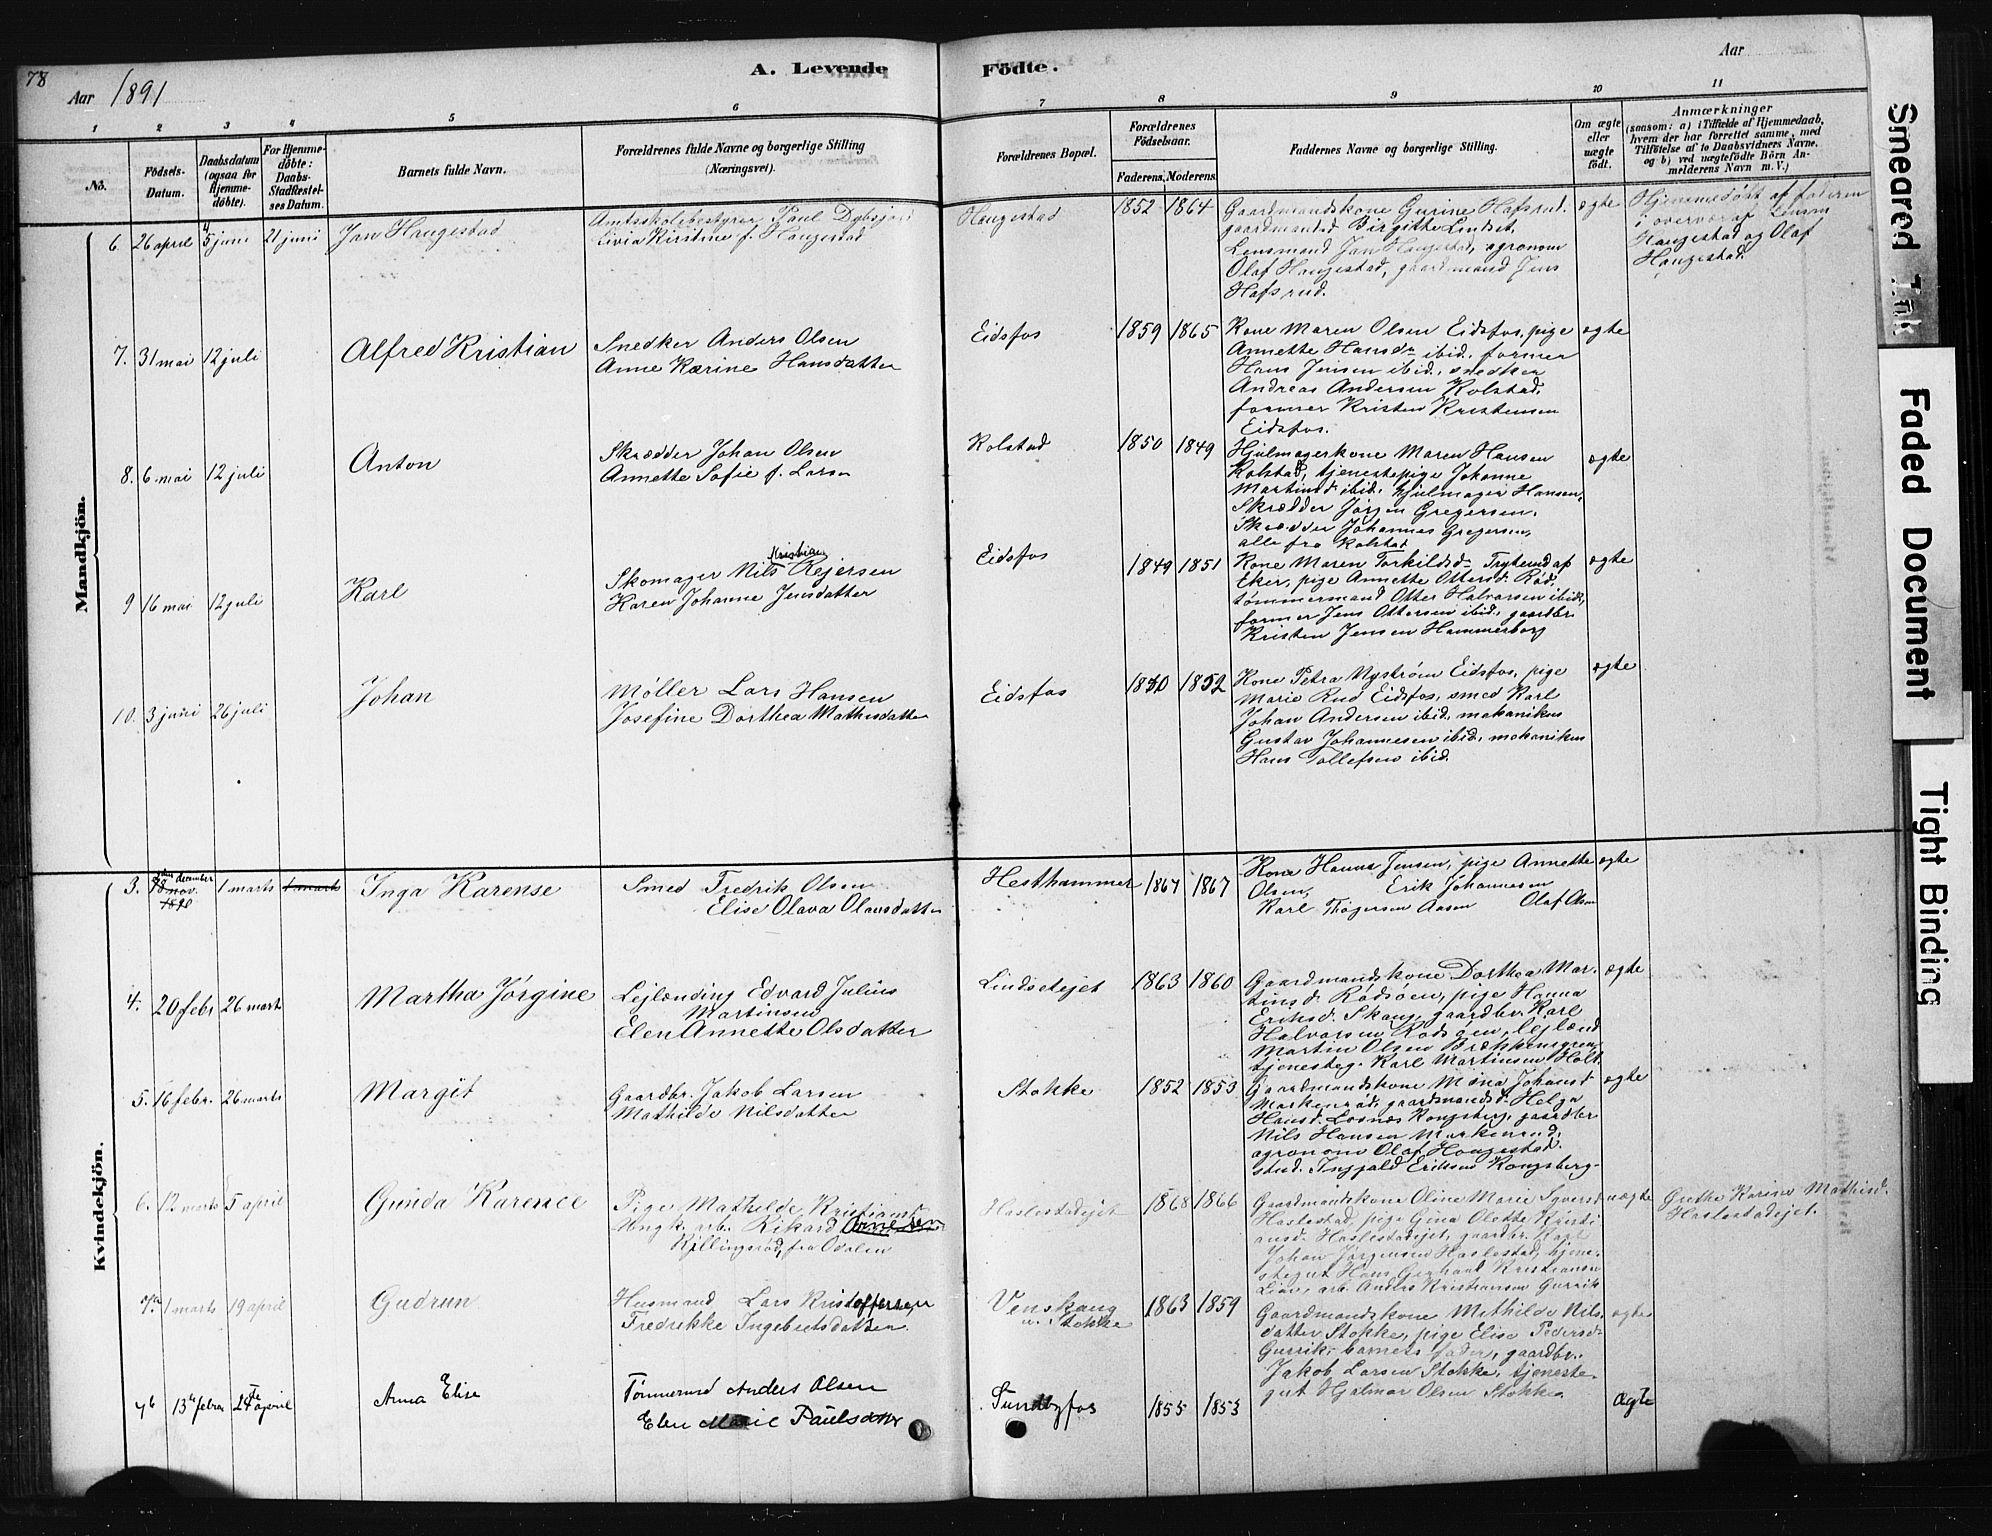 78
A. Levende Födte.
Aar 1891
Aar
1 2 3 4 5 6 7 8 9 10 11
No.
Födsels-Datum.
Daabsdatum (ogsaa for Hjemmedöbte).
For Hjemmedöbte: Daabs-Stadfæstelses Datum.
Barnets fulde Navn.
Forældrenes fulde Navne og borgerlige Stilling (Næringsvei).
Forældrenes Bopæl.
Forældrenes Födselsaar.
Faderens. Moderens.
Faddernes Navne og borgerlige Stilling.
Om ægte eller uægte födt.
Anmærkninger
(saasom: a) i Tilfælde af Hjemmedaab, hvem der har forrettet samme, med Tilföielse af to Daabsvidners Navne, og b) ved uægtefödte Börn Anmelderens Navn m.V.)
Mandkjön.
6. 26 april 5 juni 21 juni Jan Haugestad
Amtsskolebestyrer Paul Dybsjord
Livia Kirstine f. Haugestad
Haugestad 1852 1864
Gaardmandskone Gurine Hafsrud.
gaardmandsd. Birgitte Lindset,
Lensmand Jan Haugestad, agronom
Olaf Haugestad, gaardmand Jens
Hafsrud.
ægte
Hjemmedøbt af faderen
i overvær af Lensm
Haugestad og Olaf
Haugestad.
7. 31 mai 12 juli Alfred Kristian
Snedker Anders Olsen
Anne Karine Hansdatter
Eidsfos 1859 1865
Kone Maren Olsen Eidsfos, pige
Annette Hansdr ibid, former
Hans Jensen ibid, snedker
Andreas Andersen Kolstad,
former Kristen Kristensen
Eidsfos.
ægte
8. 6 mai 12 juli Anton
Skrædder Johan Olsen
Annette Sofie f. Larsen
Kolstad 1850 1849
Hjulmagerkone Maren Hansen
Kolstad, tjenestepige Johanne
Martinsd. ibid, hjulmager Hansen,
Skrædder Jørgen Gregersen,
Skrædder Johannes Gregersen,
alle fra Kolstad
ægte
9 16 mai 12 juli Karl
Kristian
Skomager Nils Rejersen
Karen Johanne Jensdatter
Eidsfos 1849 1851
Kone Maren Torkildsd. Tryterud af
Eker, pige Annette Ottersd. Rød,
tømmermand Otter Halvorsen ibid,
former Jens Ottersen ibid, gaardbr.
Kristen Jensen Hammerborg
ægte
10. 3 juni 26 juli Johan
Møller Lars Hansen
Josefine Dorthea Mathisdatter
Eidsfos 1852
Kone Petra Nystrøm Eidsfos, pige
Marie Rud Eidsfos, smed Karl
Johan Andersen ibid, mekanikus
Gustav Johannesen ibid, mekanikus
Hans Tollefsen ibid.
ægte
Kvindekjön.
3. december
nov.
1890
1 marts 1 marts Inga Karense
Smed Fredrik Olsen
Elise Olava Olausdatter
Hesthammer 1864 1867
Kone Hanna Jensen, pige Annette
Olsen, Erik Johannesen
Karl Thøgersen Aasen Olaf Olsen
ægte
4. 20 febr 26 marts Martha Jørgine
Lejlænding Edvard Julius
Martinsen
Elen Annette Olsdatter
Lindsetejet 1863 1860
Gaardmandskone Dorthea Mar-
tinsd. Rødsøen, pige Hanna
Eriksd. Skaug, gaardbr. Karl
Halvorsen Rødsøen, lejlænd
Martin Olsen
tjenesteg. Karl Martinsen Holt.
ægte
5. 16 febr. 26 marts Margit
Gaardbr. Jakob Larsen
Mathilde Nilsdatter
Stokke 1852 1853
Gaardmandskone Mina Johansd.
Markerød, gaardmandsd. Helga
Hansd. Losnæs Kongsberg, gaardbr
Nils Hansen Markerud,
agronom Olaf Haugestad.
stud. Ingjald Eriksen Kongsberg.
ægte
6. 12 marts 5 april Gunda Karence
Pige Mathilde Kristiansd.
Ungk. arb. Rikard
Killingrød, fra Odalen
Haslestadejet 1868 1866
Gaardmandskone Oline Marie Syversd
Haslestad, pige Gina Olette Kristi-
ansd. Haslestadejet, gaardbr. Karl
Johan Jørgensen Haslestad, tjene-
stegut Hans Gerhard Kristiansen
Lian, arb. Anders Kristiansen Gusrik
uægte
Grethe Karine Mathisd.
Haslestadejet.
7a. 1 marts 19 april Gudrun
Husmand Lars Kristoffersen
Fredrikke Ingebretsdatter
Venskaug
u. Stokke
1863 1859
Gaardmandskone Mathilde Nils-
datter Stokke, pige Elise Pedersd.
Gusrik, barnets fader, gaardbr.
Jakob Larsen Stokke, tjeneste-
gut Hjalmar Olsen Stokke
ægte
7b 13de febru 24 april Anna Elise
Tømmermd Anders Olsen
Elen Marie Paulsdatter
Sundbyfos 1855 1853
Ægte
Smeared Ink
Faded Document
Tight Binding